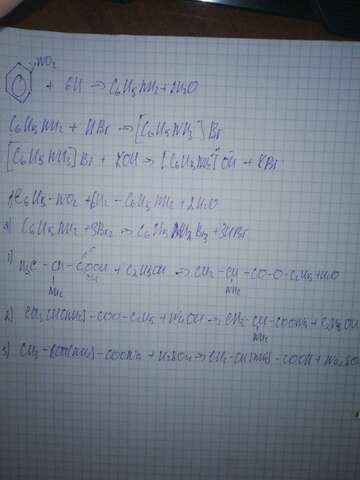 NO₂
+ 6H → C₆H₅NH₂ + 2H₂O
C₆H₅NH₂ + HBr → [C₆H₅NH₃] Br
[C₆H₅NH₃]Br + KOH → [C₆H₅NH₃] OH + KBr
C₆H₅-NO₂ + 6H - C₆H₅NH₂ + 2H₂O
C₆H₅NH₂ + 3Br₂ → + 3HBr
1) H₃C - CH - COOH + C₂H₅OH → CH₃ - CH - CO-O-C₂H₅ + H₂O
NH₂ NH₂
2) CH₃CH(NH₂)-COO-C₂H₅ + NaOH → CH₃-CH-COONa + C₂H₅OH
NH₂
3) CH₃-CH(NH₂)-COONa + H₂SO₄ → CH₃-CH(NH₂)-COOH +